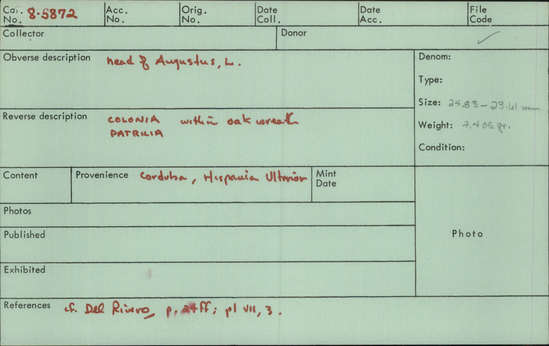 Cat. No. 8-5872 Acc. No. Orig. No. Date Coll. Date Acc. File Code ✓
Collector Donor
Obverse description head of Augustus, L.
Denom:
Type:
Reverse description COLONIA within oak wreath
PATRICIA
Size: 24.83-23.61 mm
Weight: gr.
Condition:
Content Provenience Corduba, Hispania Ulterior Mint Date
Photos
Published
Photo
Exhibited
References cf. Del Rivero, p. 24ff; pl VII, 3.